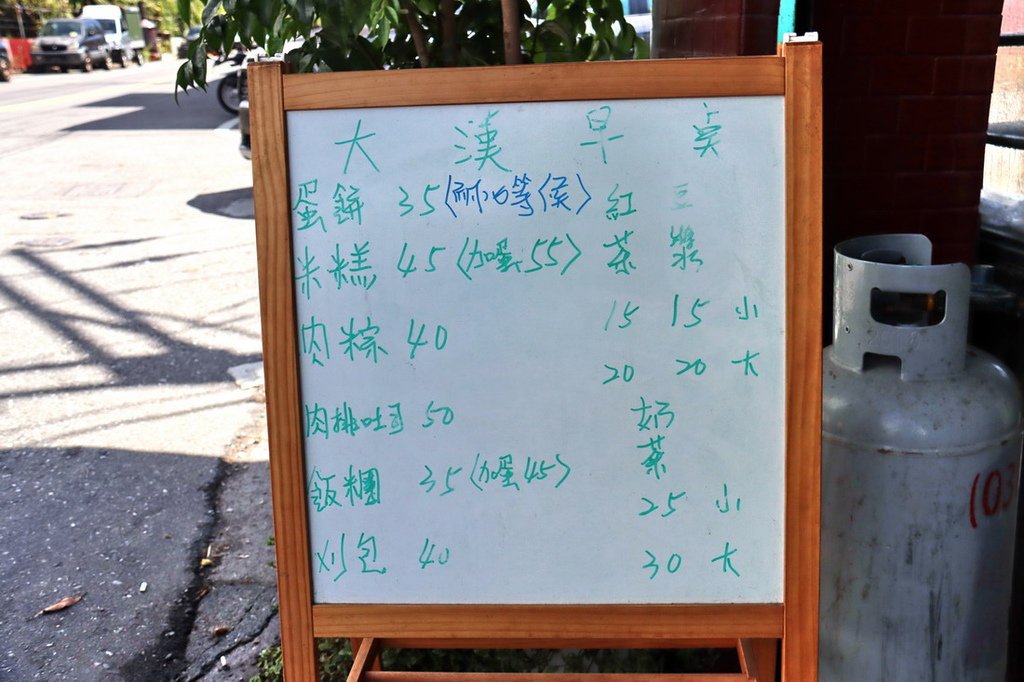 大 漢 早
蛋餅 35〈耐心等侯〉
米糕 45〈加蛋55〉
肉粽 40
肉排吐司 50
飯糰 35〈加蛋45〉
刈包 40
紅茶 豆漿
15 15 小
20 20 大
奶茶
25 小
30 大